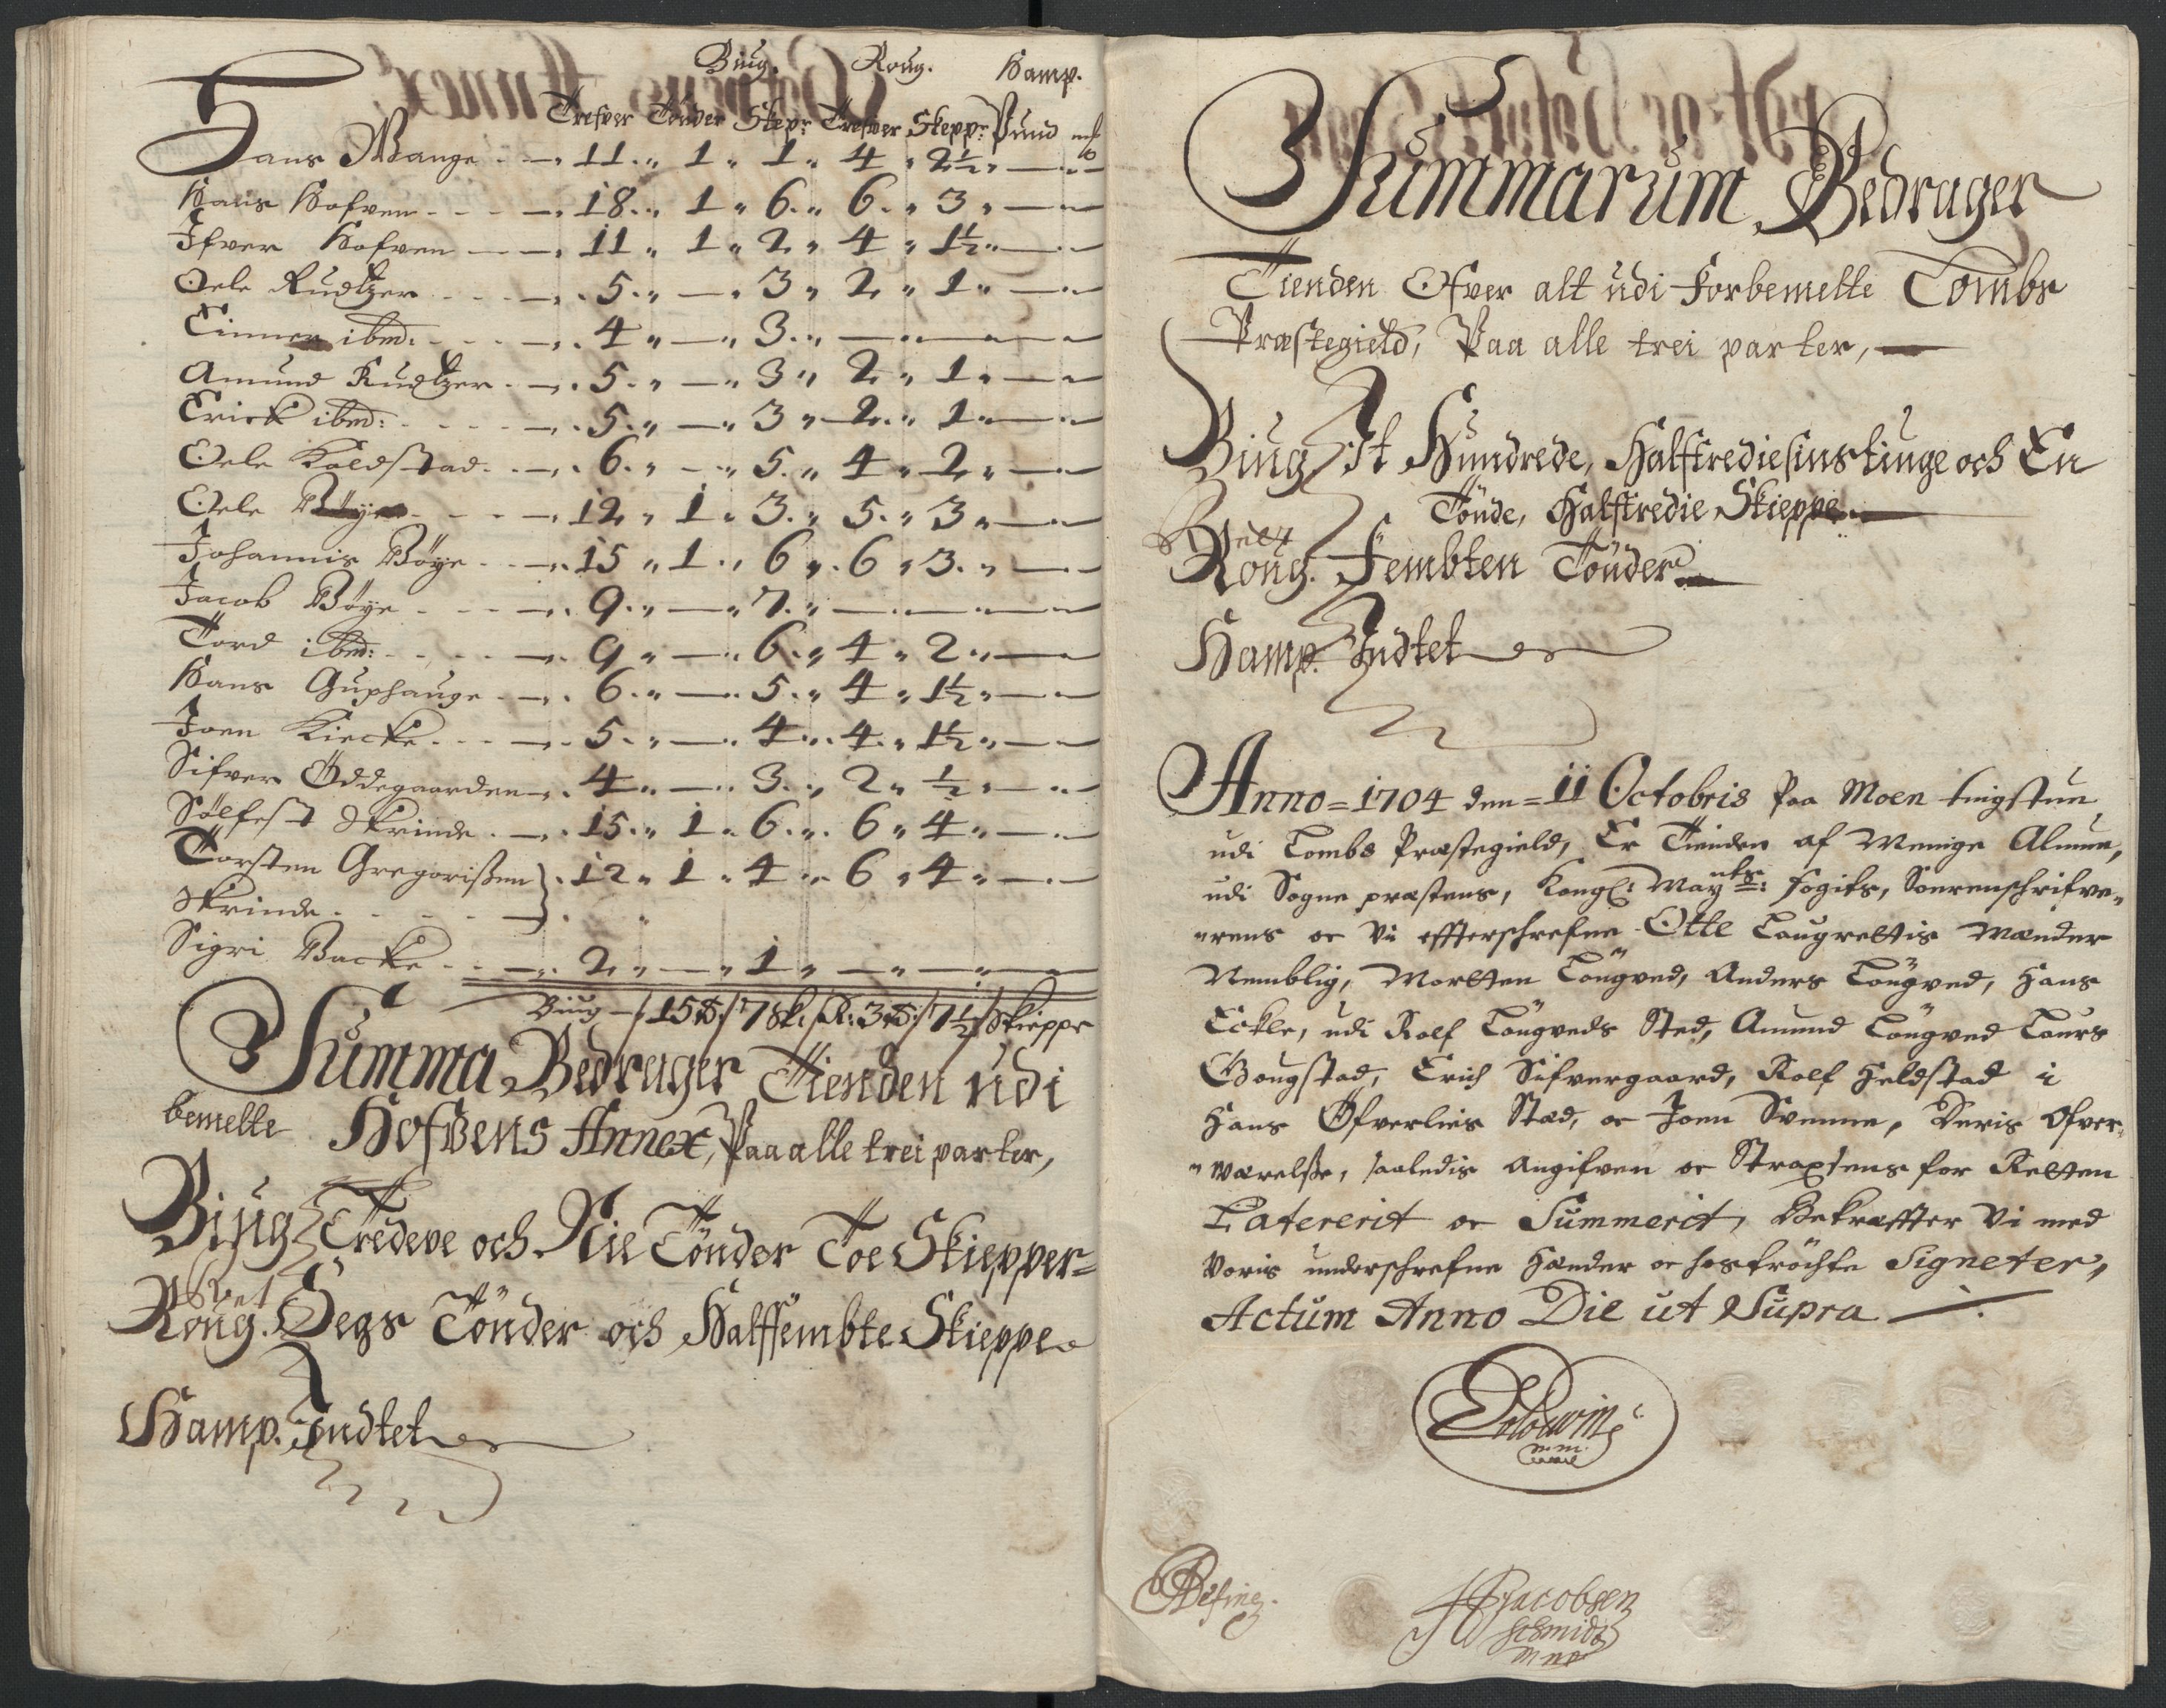 Biug. Roug. Hamp.
Trefver Tönder Skepr Trefver Skeppr Pund
Hans Wange - - 11 „ 1 „ 1 „ 4 „ 2½ „ —
Hans Hofven - - - 18 „ 1 „ 6 „ 6 „ 3 „ —
Ifver Hofven - - 11 „ 1 „ 2 „ 4 „ 1½ „ —
Oele Rudtzer - - - 5 „ — „ 3 „ 2 „ 1 „ —
Einner ibm: - - - 4 „ — „ 3 „ — „ — „ —
Amund Rudtzer - - 5 „ — „ 3 „ 2 „ 1 „ —
Erick ibm: - - - 5 „ — „ 3 „ 2 „ 1 „ —
Oele Koldstad - - 6 „ — „ 5 „ 4 „ 2 „ —
Oele Böye - - - 12 „ 1 „ 3 „ 5 „ 3 „ —
Johannis Böye - - 15 „ 1 „ 6 „ 6 „ 3 „ —
Jacob Böye - - - 9 „ — „ 7 „ — „ — „ —
Tord ibm: - - - 9 „ — „ 6 „ 4 „ 2 „ —
Hans Guphauge - - 6 „ — „ 5 „ 4 „ 1½ „ —
Joen Kiecke - - - 5 „ — „ 4 „ 4 „ 1½ „ —
Sifver Öddegaarden - 4 „ — „ 3 „ 2 „ ½ „ —
Sölfest Skrinde - - 15 „ 1 „ 6 „ 6 „ 4 „ —
Torsten Gregorißen } 12 „ 1 „ 4 „ 6 „ 4 „ —
Skrinde - - - -
Sigri Backe - - - 2 „ — „ 1 „ — „ — „ —
Biug — / 15 T: / 7 Sk: / R: 3 T: / 7½ / Skieppr
Summa Bedrager Tienden udi
bemelte Hofvens Annex, Paa alle trei parter,
Biug Tredeve och Nie Tönder Toe Skiepper
Roug. Segs Tönder och Halffembte Skieppe
Hamp. Indtet
Summarum Bedrager
Tienden Ofver alt udi Forbemelte Tombs
Præstegield, Paa alle trei parter, —
Biug It Hundrede, Halftrediesinstiuge och En
Tönde, Halftredie Skieppe
Roug. Fembten Tönder
Hamp. Indtet
Anno = 1704 den = 11 Octobris paa Moen tingstue
udi Tombs Præstegield, Er Tienden af Menige Almue,
udi Sogne præstens, Kongl: Mayts: fogits, Sorenschrifve„
„rens oc Vi effterschrefne Otte Laugrettis Mænder
Nemblig, Morten Töugved, Anders Töugved, Hans
Eckle, udi Rolf Töugveds Sted, Amund Töugved Lours
Gougstad, Erich Sifvergaard, Rolf Heldstad i
Hans Öfverlies Sted, oc Joen Svemme, Deris Ofver„
„værelße, saaledis Angifven oc Straxsens for Retten
Latererit oc Summerit, Bekræffter Vi med
Voris underschrefne Hænder oc hoströchte Signeter,
Actum Anno Die ut Supra
Jacobsen
Schmidt